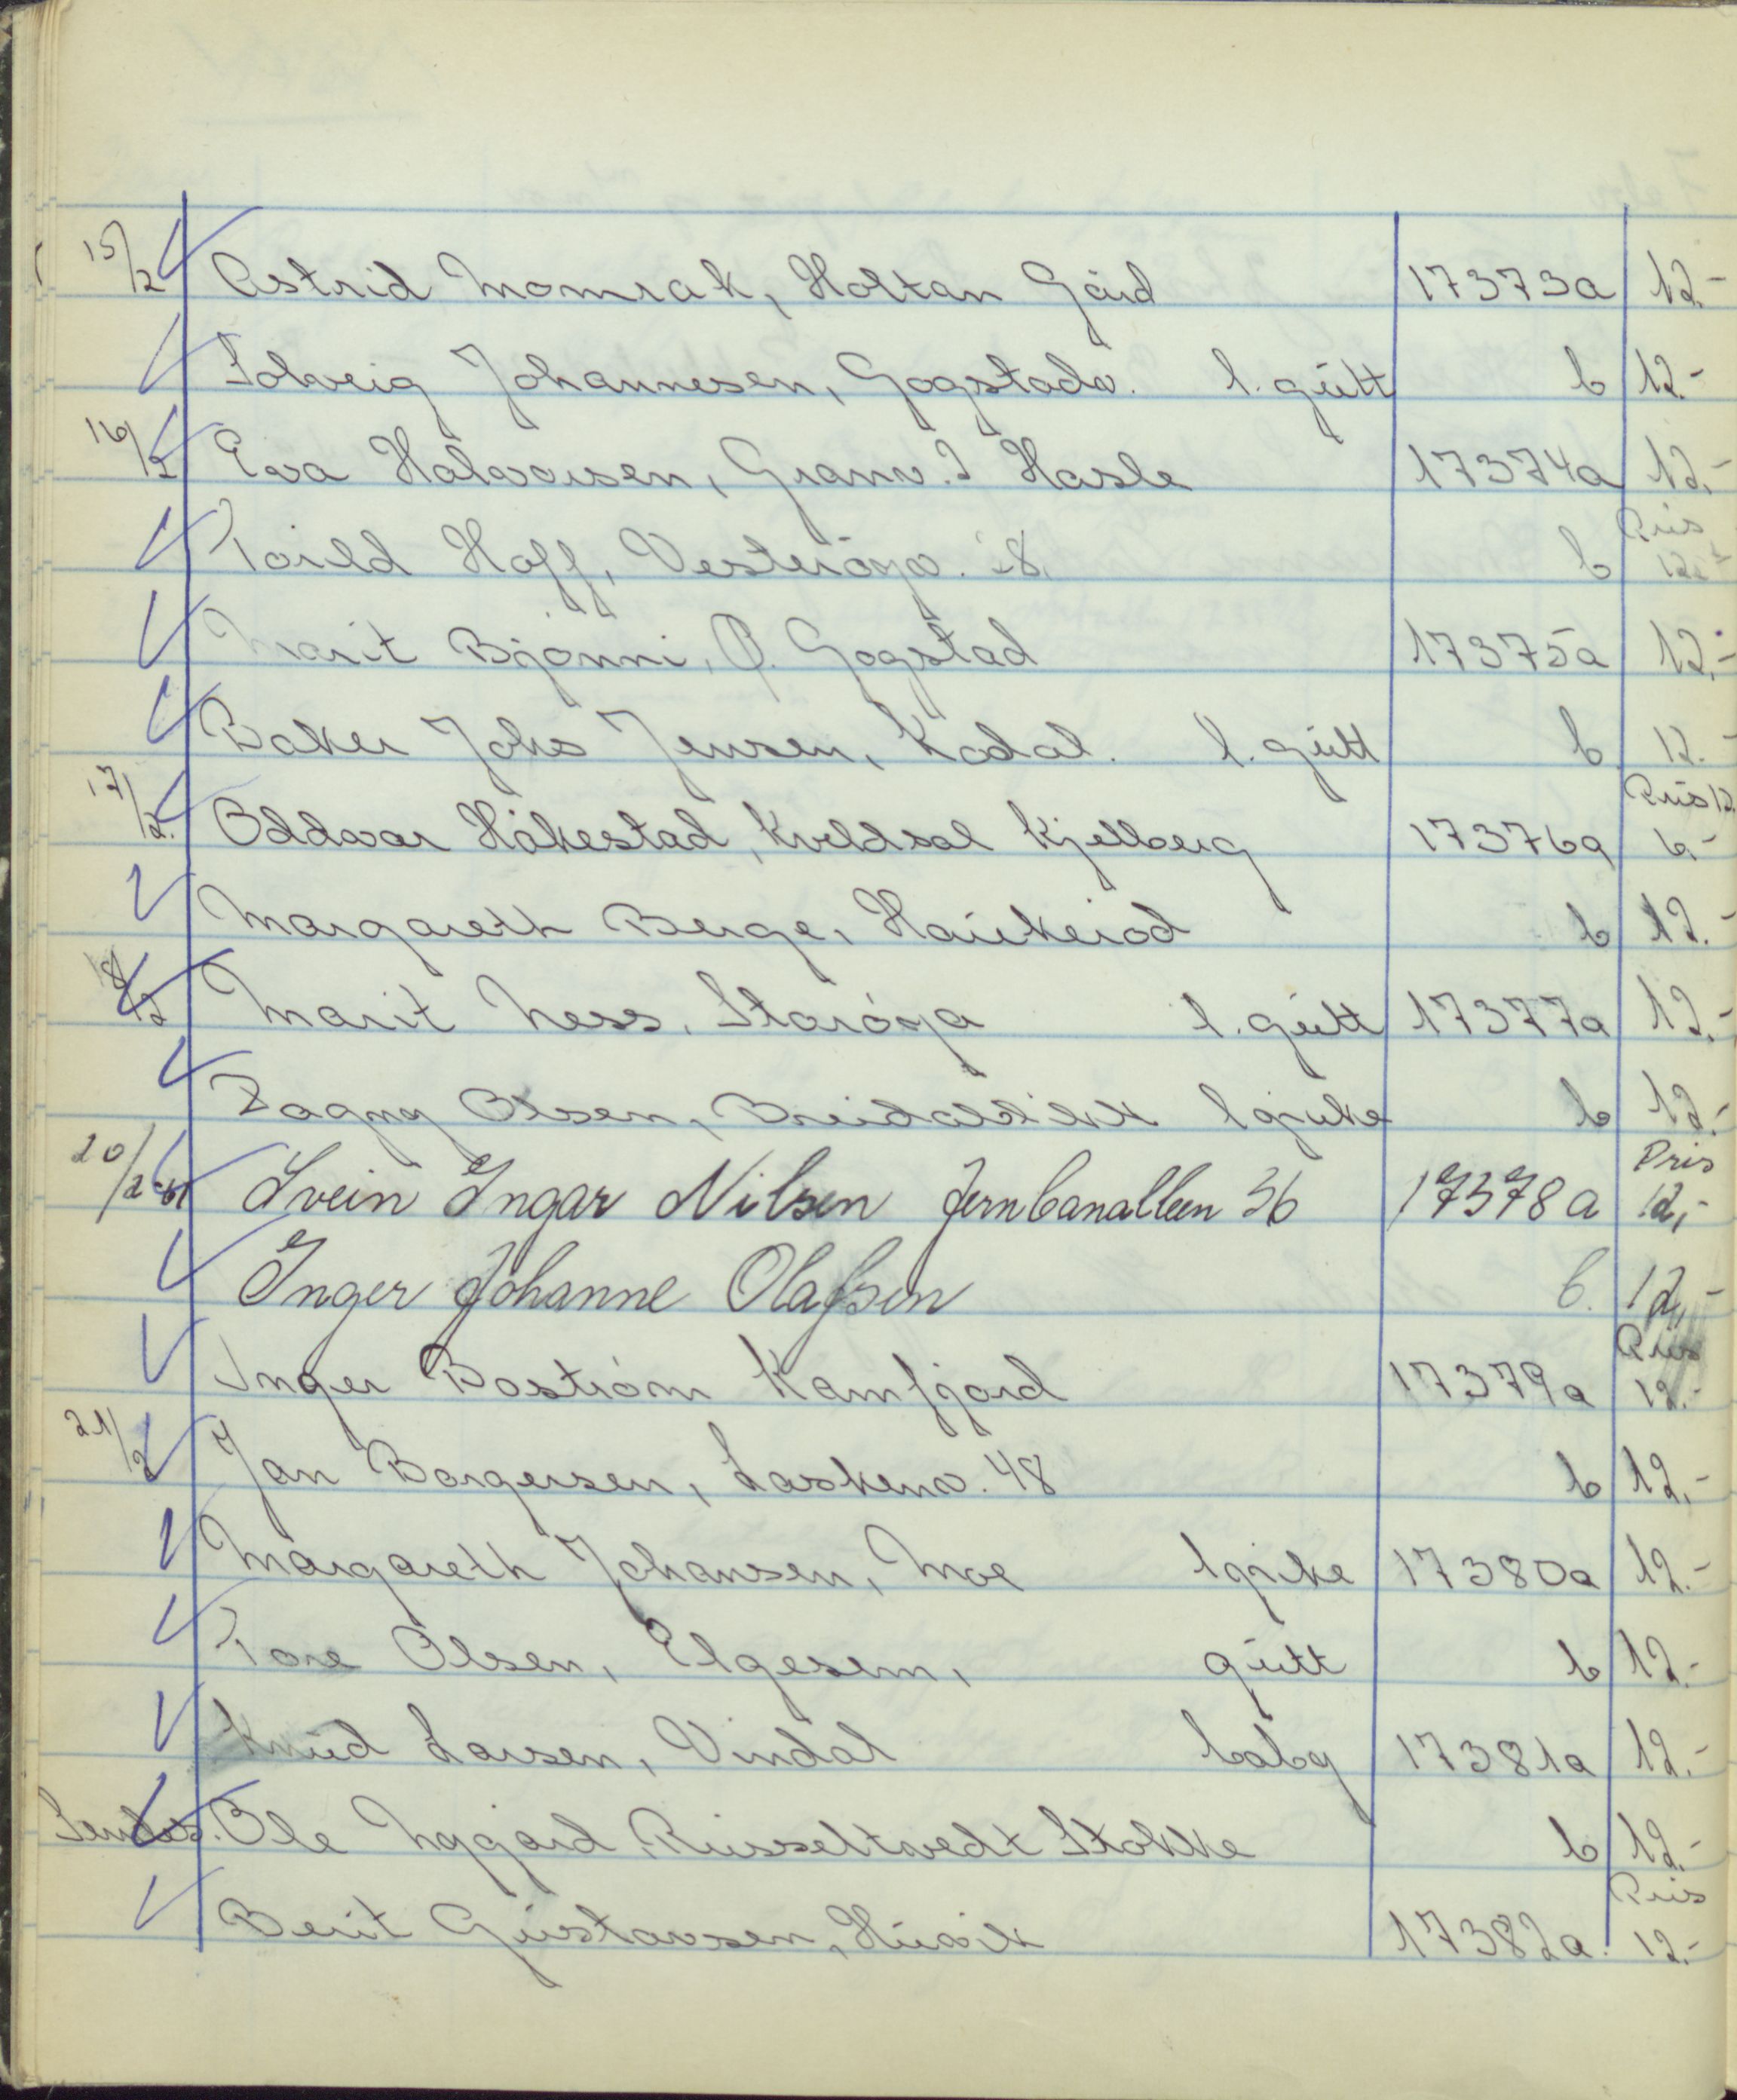 15/2 Astrid Momrak, Holtan Gård 17373a 12.-
Solveig Johannesen, Gogstadv. l. gutt b 12.-
16/2 Eva Halvorsen, Granv. 2 Hasle 17374a 12,-
Pris
Torild Hoff, Vesterøyv. 28. b 12.-
Marit Bjønni, Ø. Gogstad 17375a 12.-
Baker Johs Jensen, Kodal. l. gutt b 12.-
Pris 12.
17/2. Oddvar Håkestad, Kveldsol Kjelberg 17376a 6,-
Margareth Berge, Haukerød b 12.-
18/2 Marit Ness, Storøya l. gutt 17377a 12.-
Dagny Olsen, Breidablikk l pike b 12.-
Pris
20/2-61 Svein Ingar Nilsen Jernbanalleen 36 17378a 12,-
Inger Johanne Olafsen b. 12,-
Pris
Inger Bostrøm Kamfjord 17379a 12.-
21/2 Jan Borgersen, Laskenv. 48 b 12,-
Margareth Johansen, Moe l pike 17380a 12.-
Tore Olsen, Elgesem, gutt b 12.-
Knud Larsen, Vindal baby 17381a 12.-
Sendes. Ole Nygård Russeltvedt Stokke b 12.-
Pris
Berit Gustavsen, Huvik 17382a. 12.-